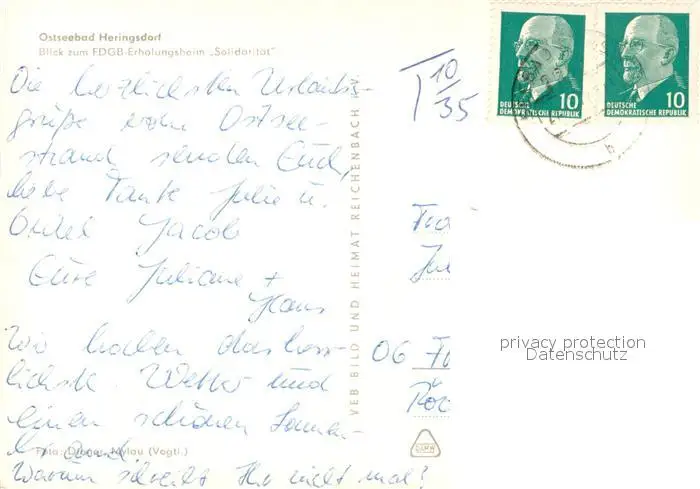 Ostseebad Heringsdorf
Blick zum FDGB-Erholungsheim „Solidarität“
Die herzlichsten Urlaubs-
grüße vom Ostsee-
strand senden Euch,
liebe Tante Julie u.
Onkel Jacob
Eure Juliane +
Hans
Wir haben das herr-
lichste Wetter und
einen schönen Sonnen-
brand.
Foto: Mylau (Vogtl.)
Warum schreibt Ihr nicht mal?
VEB BILD UND HEIMAT REICHENBACH
T 10/35
10
DEUTSCHE
DEMOKRATISCHE REPUBLIK
10
DEUTSCHE
DEMOKRATISCHE REPUBLIK
06
privacy protection
Datenschutz